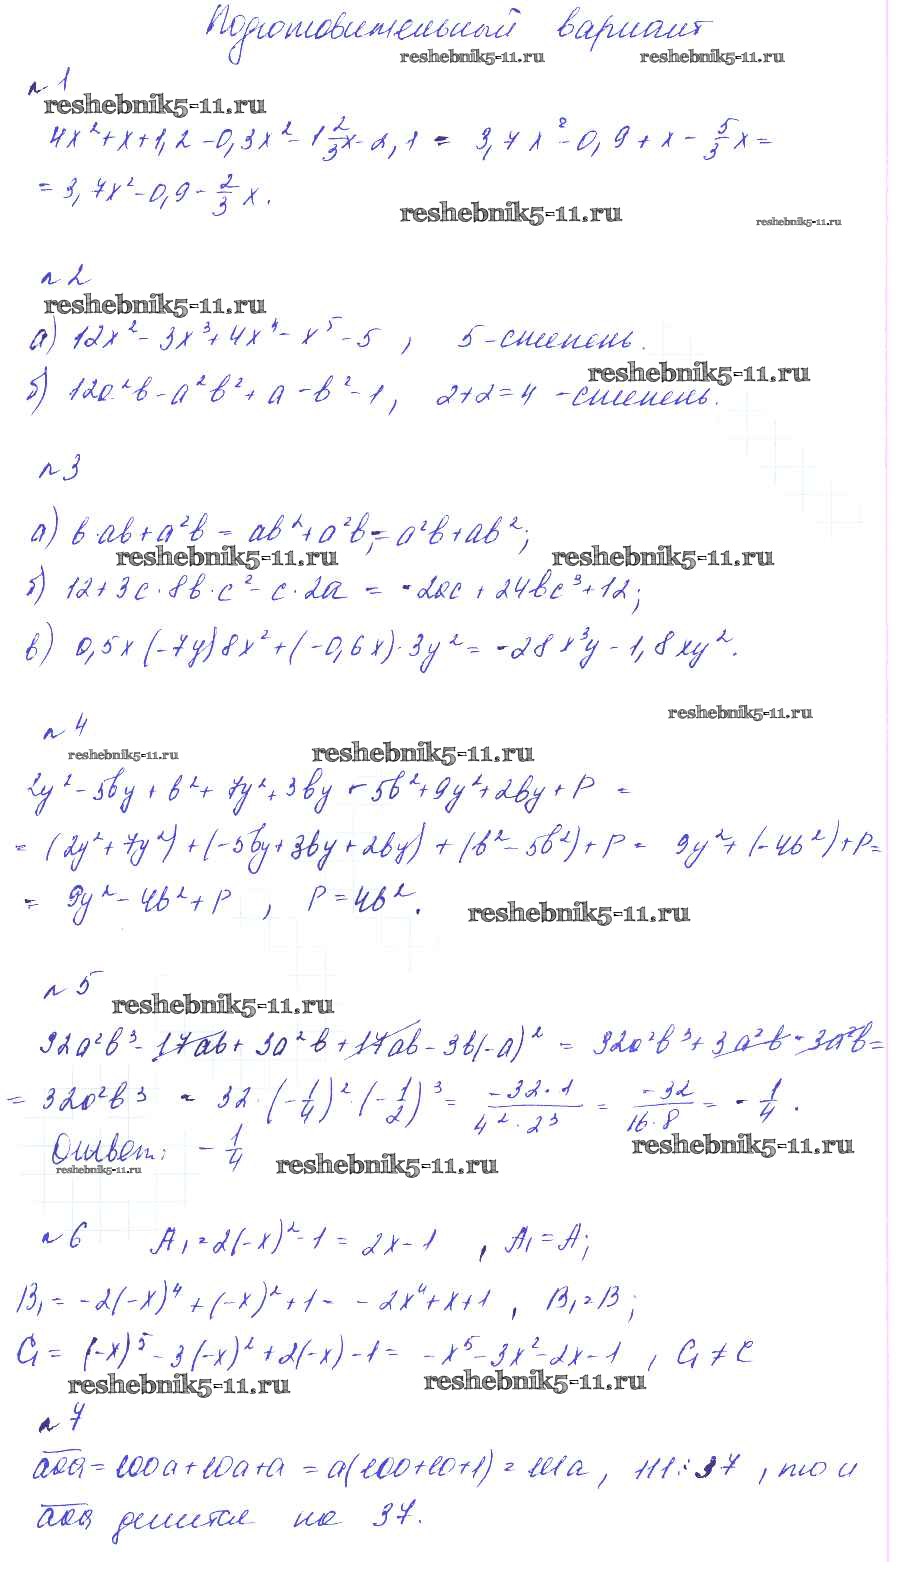 Подготовительный вариант
reshebnik5-11.ru reshebnik5-11.ru
n 1
reshebnik5-11.ru
4x² + x + 1,2 - 0,3x² - 1 2/3 x - 2,1 = 3,7x² - 0,9 + x - 5/3 x =
= 3,7x² - 0,9 - 2/3 x.
reshebnik5-11.ru reshebnik5-11.ru
n 2
reshebnik5-11.ru
а) 12x² - 3x³ + 4x⁴ - x⁵ - 5 , 5 - степень.
reshebnik5-11.ru
б) 12a²b - a²b² + a - b² - 1 , 2+2=4 - степень.
n 3
а) b·ab + a²b = ab² + a²b = a²b + ab²;
reshebnik5-11.ru reshebnik5-11.ru
б) 12 + 3c·8b·c² - c·2a = -2ac + 24bc³ + 12;
в) 0,5x(-7y)8x² + (-0,6x)·3y² = -28x³y - 1,8xy².
reshebnik5-11.ru
n 4
reshebnik5-11.ru reshebnik5-11.ru
2y² - 5by + b² + 7y² + 3by - 5b² + 9y² + 2by + P =
= (2y² + 7y²) + (-5by + 3by + 2by) + (b² - 5b²) + P = 9y² + (-4b²) + P =
= 9y² - 4b² + P , P = 4b².
reshebnik5-11.ru
n 5
reshebnik5-11.ru
32a²b³ - 17ab + 3a²b + 17ab - 3b(-a)² = 32a²b³ + 3a²b - 3a²b =
= 32a²b³ = 32·(-1/4)²·(-1/2)³ = -32·1/4²·2³ = -32/16·8 = -1/4.
reshebnik5-11.ru
Ответ: -1/4
reshebnik5-11.ru reshebnik5-11.ru
n 6 A₁ = 2(-x)² - 1 = 2x - 1 , A₁ = A;
B₁ = -2(-x)⁴ + (-x)² + 1 = -2x⁴ + x + 1 , B₁ = B;
C₁ = (-x)⁵ - 3(-x)² + 2(-x) - 1 = -x⁵ - 3x² - 2x - 1 , C₁ ≠ C
reshebnik5-11.ru reshebnik5-11.ru
n 7
aaa = 100a + 10a + a = a(100 + 10 + 1) = 111a , 111 ⋮ 37 , то и
aaa делится на 37.